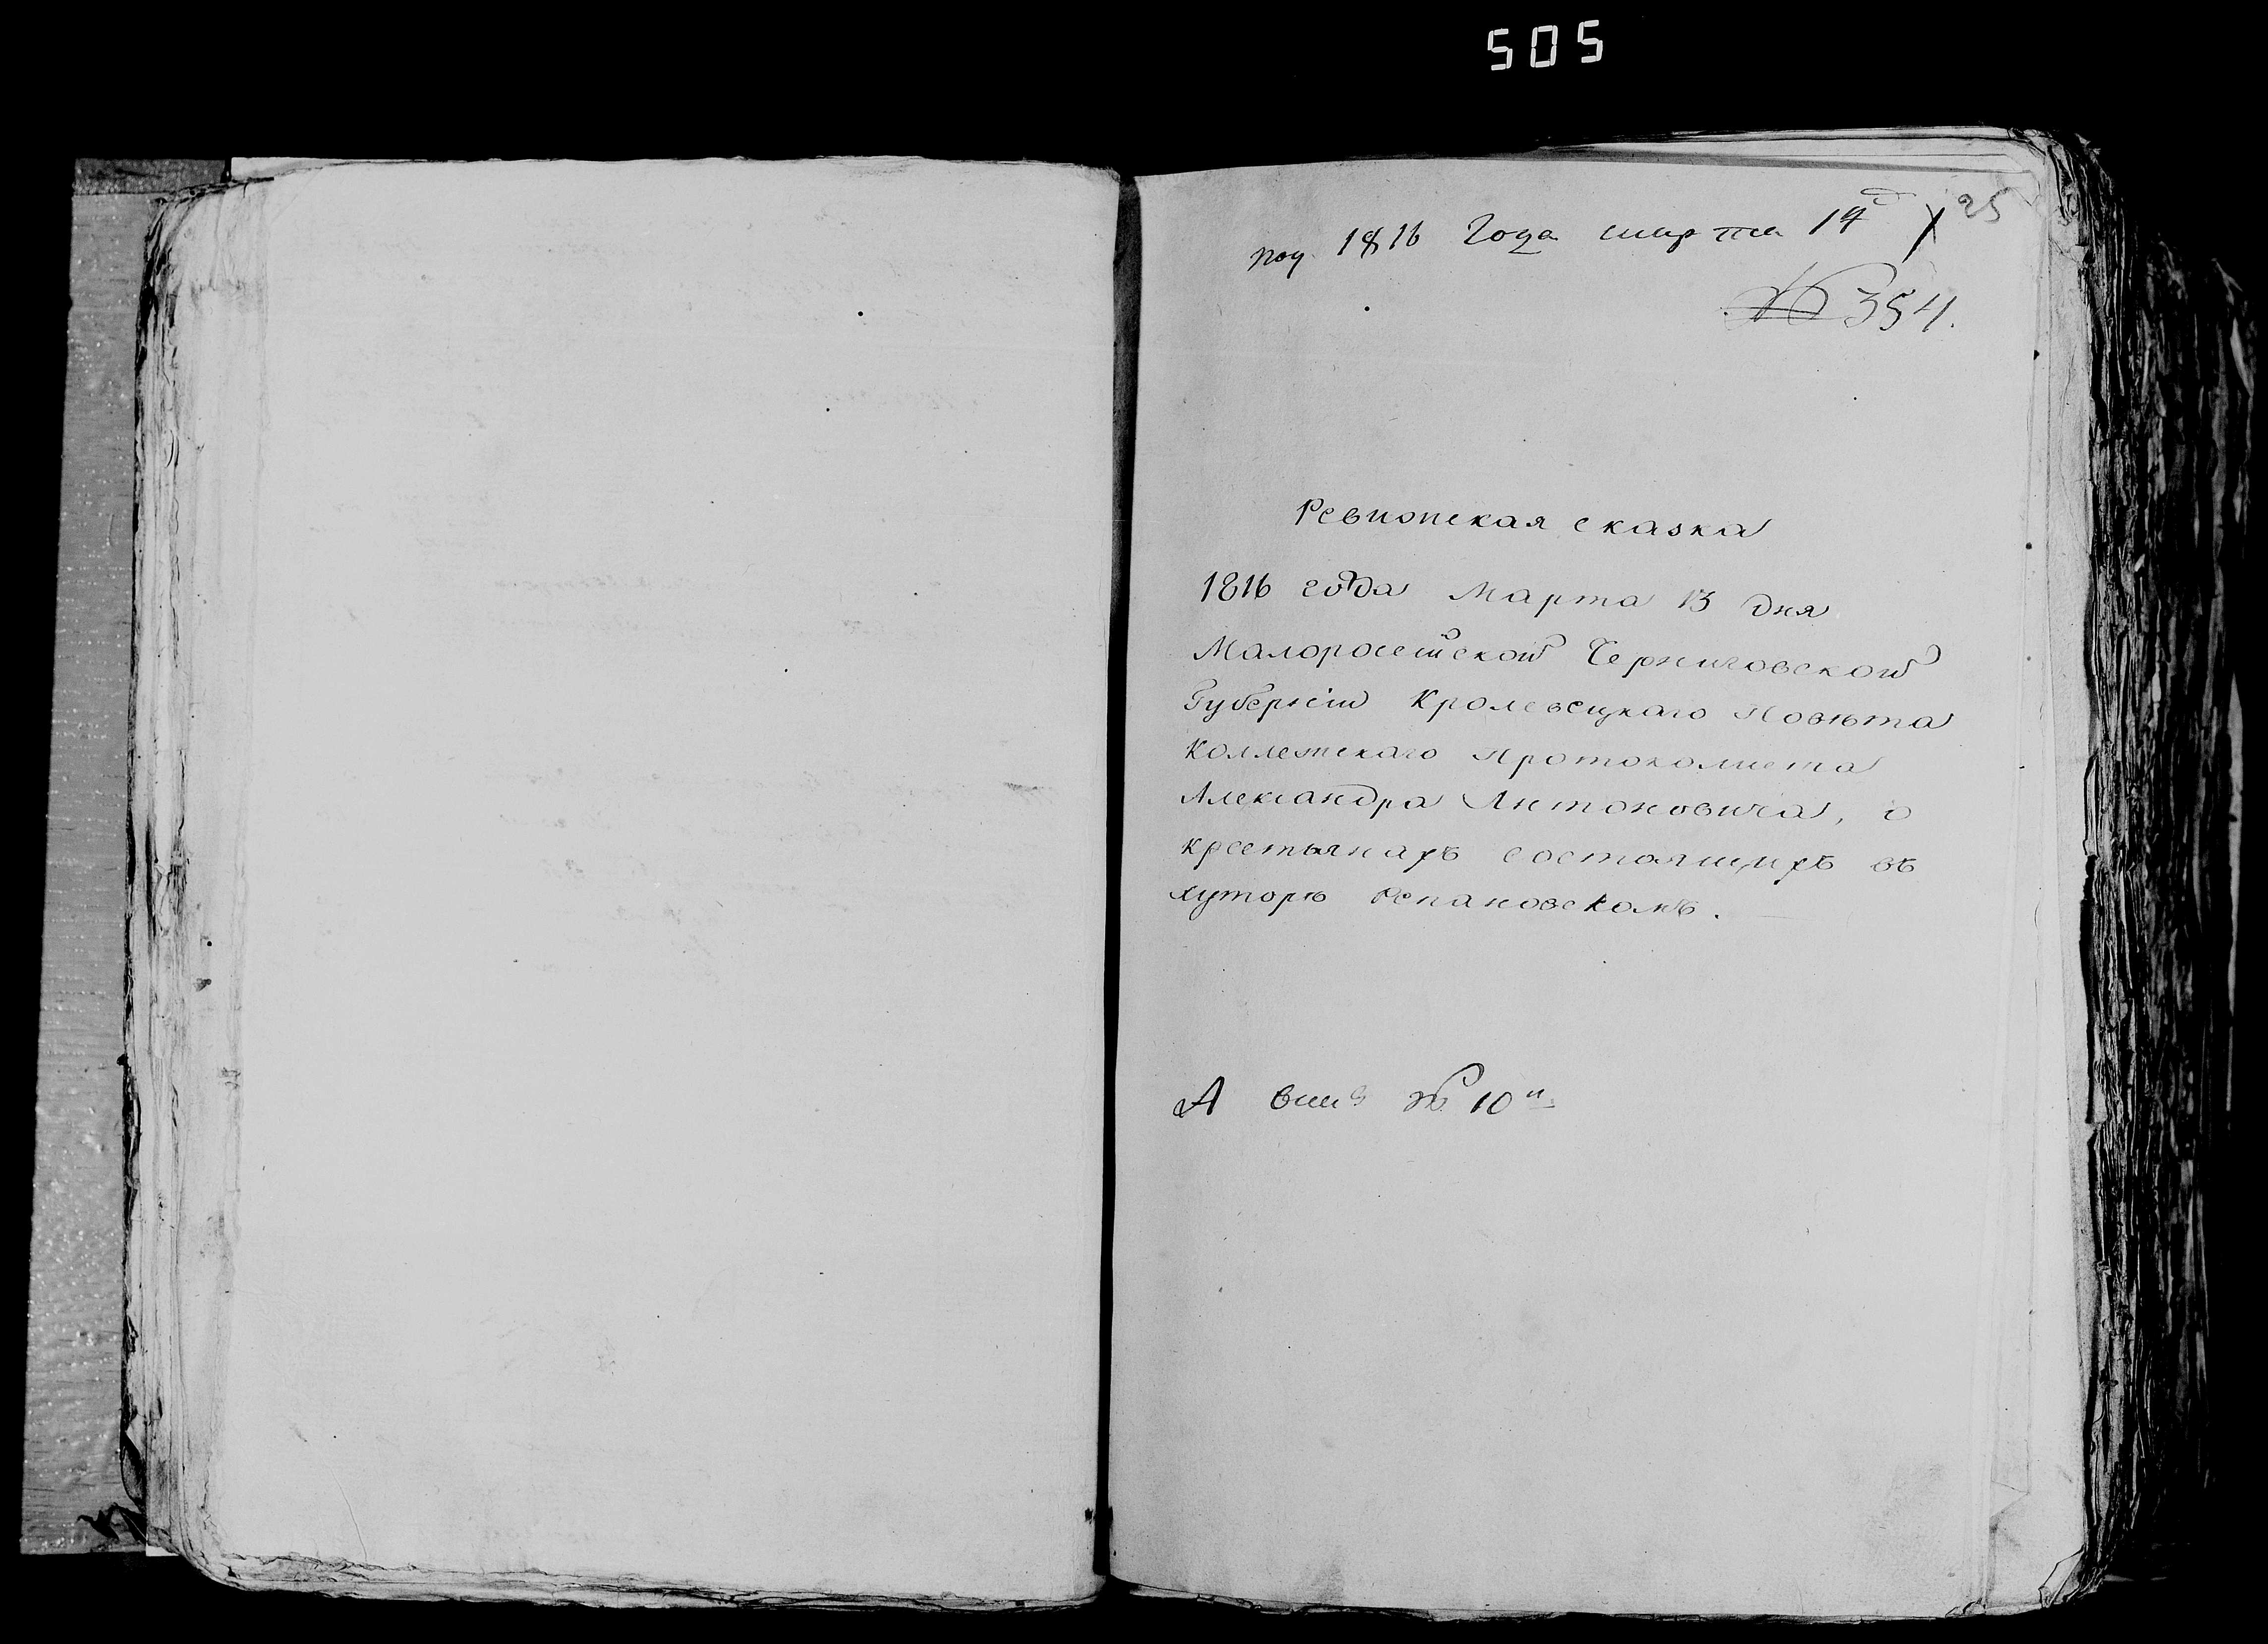 505
25
под 1816 Года марта 14д
№ 354.
Ревизская сказка
1816 года Марта 13 дня
Малоросейской Черниговской
Губерніи Кролевецкаго Повѣта
Коллежскаго Протоколиста
Александра Антоновича, о
крестьянахъ состоящихъ въ
хуторѣ Репановскомъ.
А № 10й